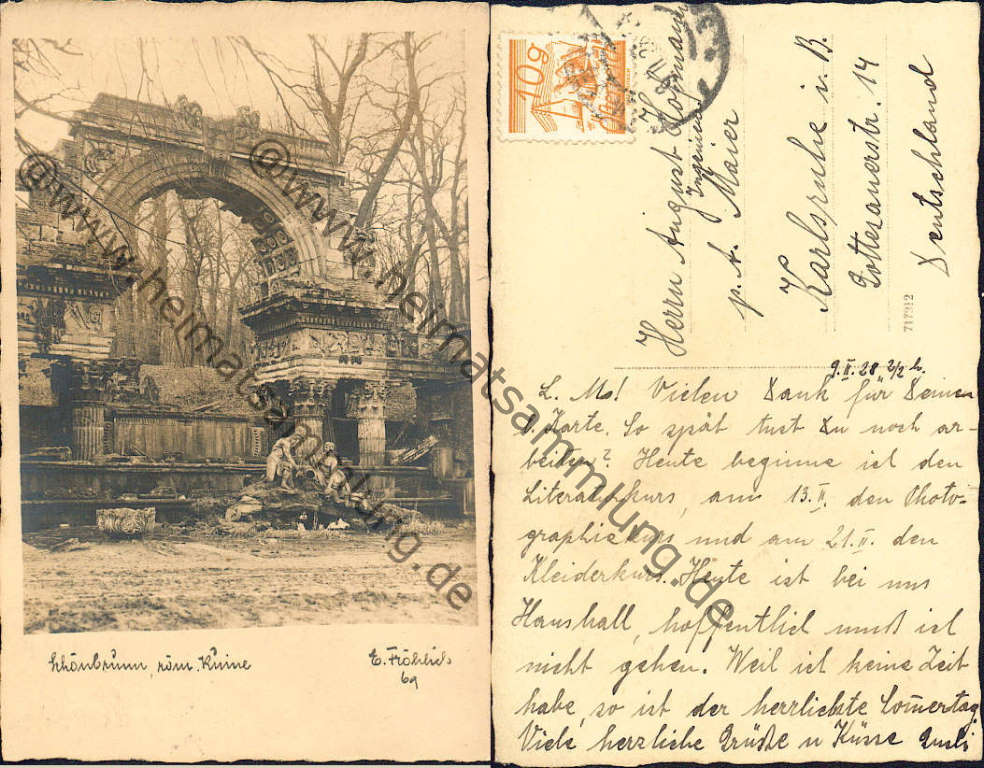 Schönbrunn, röm. Ruine
E. Fröhlich
69
@www.heimatsammlung.de
@www.heimatsammlung.de
10g
Herrn August Hofmann
Ingenieur
p. A. Maier
Karlsruhe i. B.
Gottesauerstr. 14
Deutschland
717912
9.II.28 2/2 h.
L. Mo! Vielen Dank für Deine
l. Karte. So spät tust Du noch ar-
beiten? Heute beginne ich den
Literaturkurs, am 13.II. den Photo-
graphiekurs und am 21.II. den
Kleiderkurs. Heute ist bei uns
Hausball, hoffentlich muß ich
nicht gehen. Weil ich keine Zeit
habe, so ist der herrlichste Som̄ertag.
Viele herzliche Grüße u Küsse